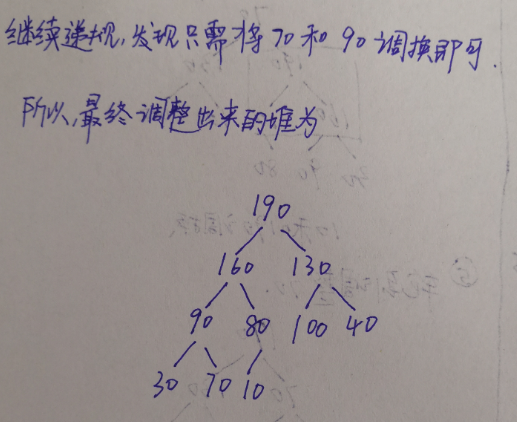 继续递规,发现只需将70和90调换即可.
所以,最终调整出来的堆为
190
160 130
90 80 100 40
30 70 10